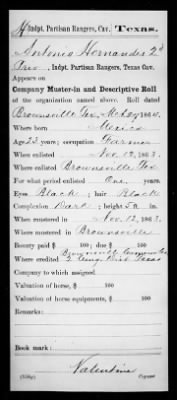 H Indpt. Partisan Rangers, Cav., Texas.
Antonio Hernandes 2d
Prio, Indpt. Partisan Rangers, Texas Cav.
Appears on
Company Muster-in and Descriptive Roll
of the organization named above. Roll dated
Brownsville Tex, 1864.
Where born Mexico
Age 22 years; occupation Farmer
When enlisted Nov. 12, 1863.
Where enlisted Brownsville Tex
For what period enlisted One years.
Eyes Black; hair Black
Complexion Dark; height 5 ft. in.
When mustered in Nov. 12, 1863.
Where mustered in Brownsville
Bounty paid $ 100; due $ 100
Where credited Brownsville Cameron Co
2 Cong. Dist. Texas
Company to which assigned
Valuation of horse, $ 100
Valuation of horse equipments, $ 100
Remarks:
Book mark:
Valentine
Copyist